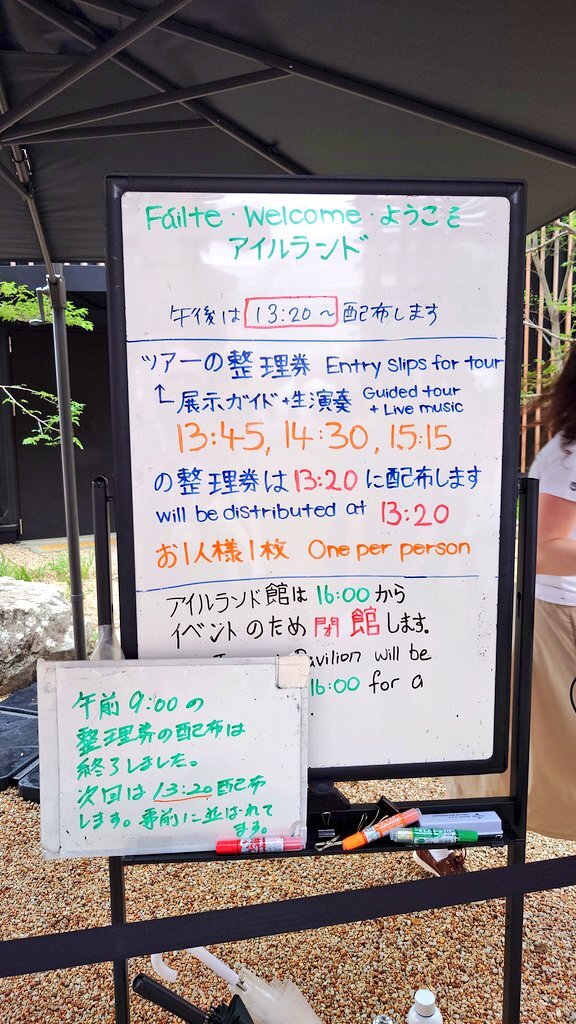 Fáilte · Welcome · ようこそ
アイルランド
午後は 13:20~ 配布します
ツアーの整理券 Entry slips for tour
↳展示ガイド+生演奏 Guided tour + Live music
13:45, 14:30, 15:15
の整理券は 13:20 に配布します
will be distributed at 13:20
お1人様1枚 One per person
アイルランド館は 16:00 から
イベントのため 閉館します。
Pavilion will be
16:00 for a
午前 9:00 の
整理券の配布は
終了しました。
次回は 13:20 配布
します。事前に並ばれて
ます。